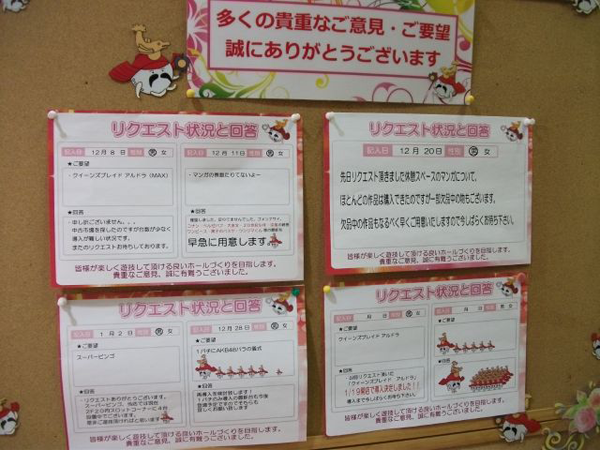 多くの貴重なご意見・ご要望
誠にありがとうございます
リクエスト状況と回答
記入日 12月8日 性別 男 女
★ご要望
・クイーンズブレイド アルドラ(MAX)
★回答
・申し訳ございません。。。
中古市場を探したのですが台数が少なく
導入が難しい状況です。
またのリクエストお待ちしております。
12月11日 男 女
★ご要望
・マンガの表紙とりてないよー
★回答
早急に用意します
皆様が楽しく遊技して頂ける良いホールづくりを目指します。
貴重なご意見、誠に有難うございました。
リクエスト状況と回答
記入日 12月20日 性別 男 女
先日リクエスト頂きました休憩スペースのマンガについて。
ほとんどの作品は購入できたのですが一部欠品中の物もございます。
欠品中の作品もなるべく早くご用意いたしますので今しばらくお待ち下さい。
皆様が楽しく遊技して頂ける良いホールづくりを目指します。
貴重なご意見、誠に有難うございました。
リクエスト状況と回答
記入日 1月2日 性別 男 女
★ご要望
スーパービンゴ
★回答
・リクエストありがとうございます。
スーパービンゴ、当店では現在
2F20円スロットコーナーに4台
設置中でございます。
是非ご遊技頂ければと思います
記入日 12月28日 性別 男 女
★ご要望
1パチにAKB48バラの儀式
★回答
再導入を検討致します!
皆様が楽しく遊技して頂ける良いホールづくりを目指します。
貴重なご意見、誠に有難うございました。
リクエスト状況と回答
記入日 月 日 性別 男 女
★ご要望
クイーンズブレイド アルドラ
★回答
お待たせ
「クイーンズブレイド アルドラ」
1/19開店で導入決定しました!
導入まで今しばらくお待ち下さい。
月 日 男 女
★ご要望
★回答
皆様が楽しく遊技して頂ける良いホールづくりを目指します。
貴重なご意見、誠に有難うございました。